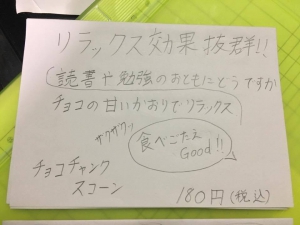 リラックス効果抜群!!
読書や勉強のおともにどうですか
チョコの甘いかおりでリラックス
サクサクッ
食べごたえ
Good!!
チョコチャンク
スコーン
180円(税込)